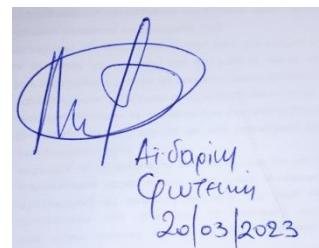 Αϊδαρίνη
Φωτεινή
20/03/2023